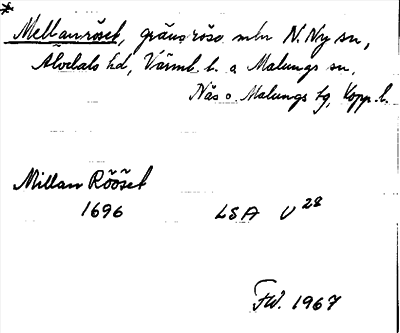 Mellanröset, gränsröse mln N. Ny sn,
Älvdals hd, Värml. l. o Malungs sn,
Näs o. Malungs tg, Kopp. l.
Millan Rööset
1696 LSA U 28
FW. 1967